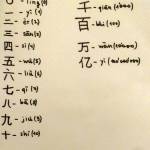 一 - yī (1)
二 - èr (2)
三 - sān (3)
四 - sì (4)
五 - wǔ (5)
六 - liù (6)
七 - qī (7)
八 - bā (8)
九 - jiǔ (9)
十 - shí (10)
千 - qiān (1000)
百 - bǎi (100)
万 - wàn (10000)
亿 - yì